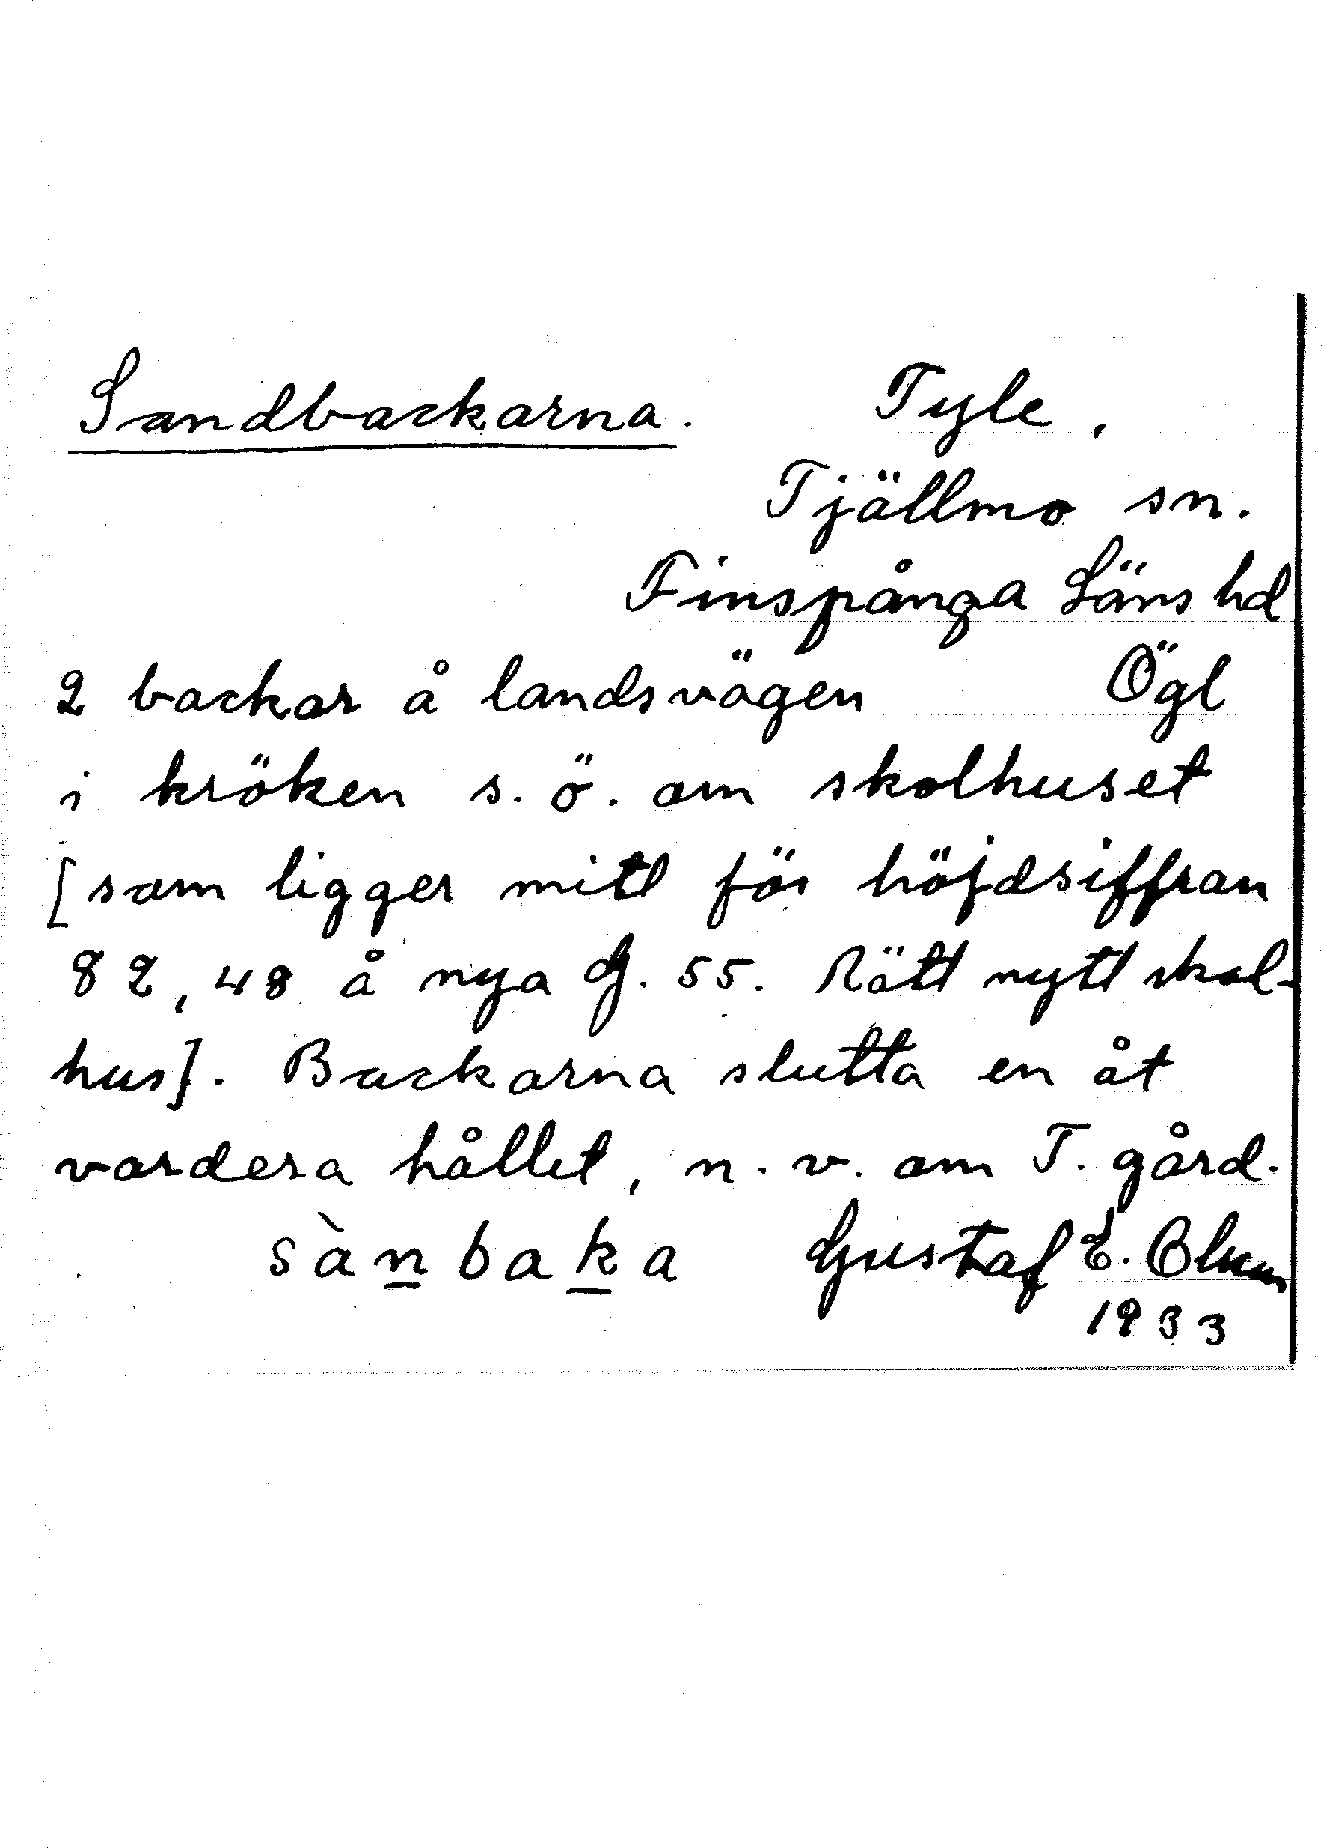 Sandbackarna. Tyle,
Tjällmo sn.
Finspånga Läns hd
2 backar å landsvägen Ögl
i kröken s. ö. om skolhuset
[som ligger mitt för höjdsiffran
82,48 å nya G. 55. Rätt nytt skol-
hus]. Backarna slutta en åt
vardera hållet, n. v. om T. gård.
sànbaka Gustaf E. Blum
1933